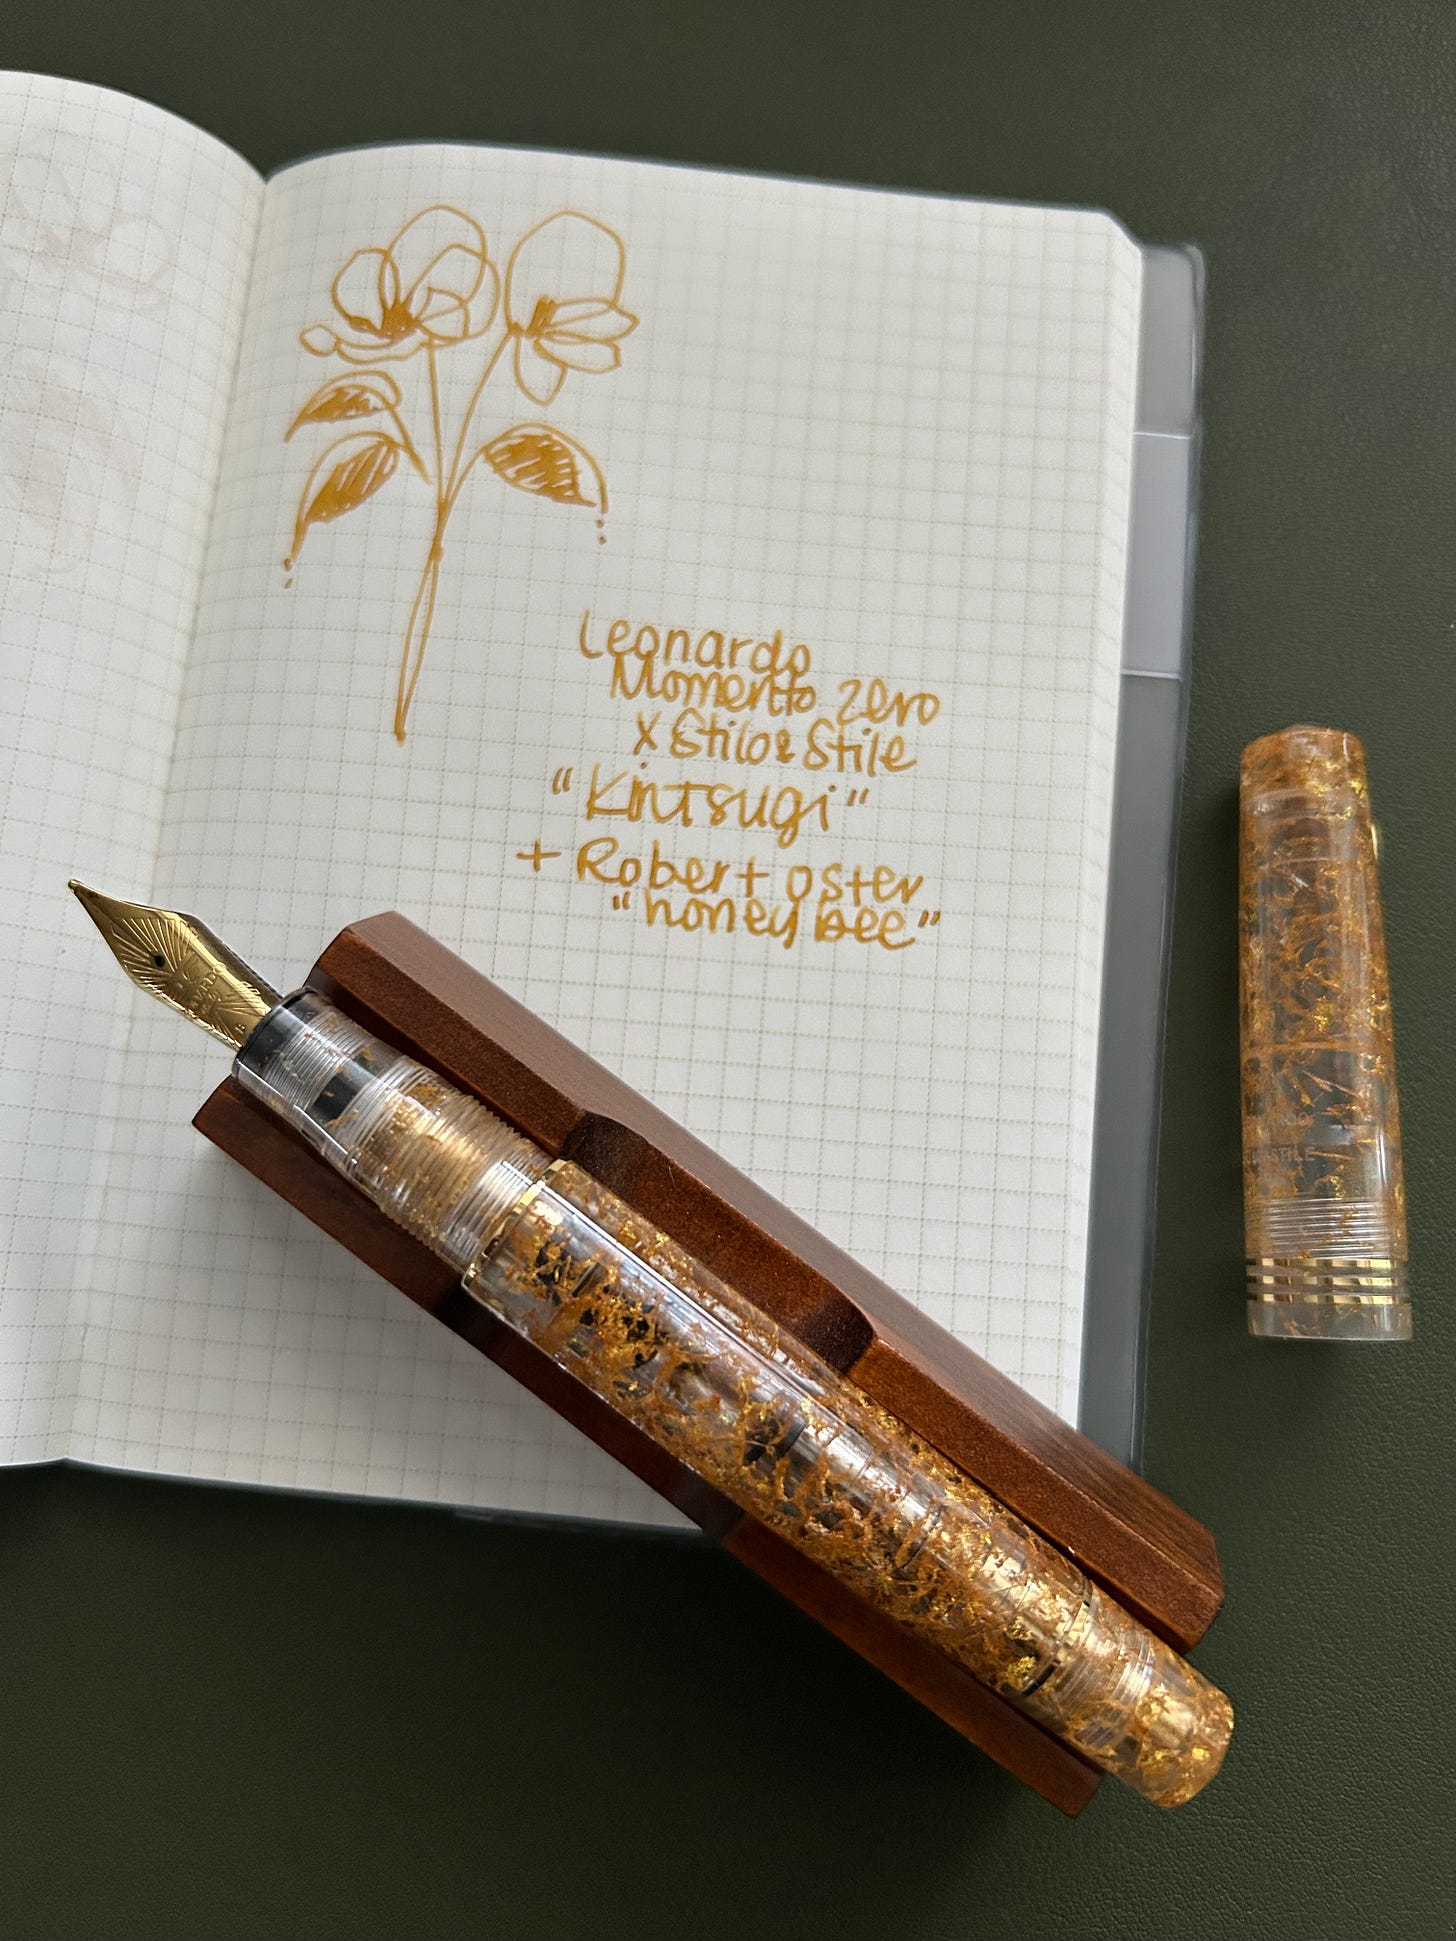 Leonardo
Momento Zero
x Stilo & Stile
"Kintsugi"
+ Robert Oster
"honey bee"